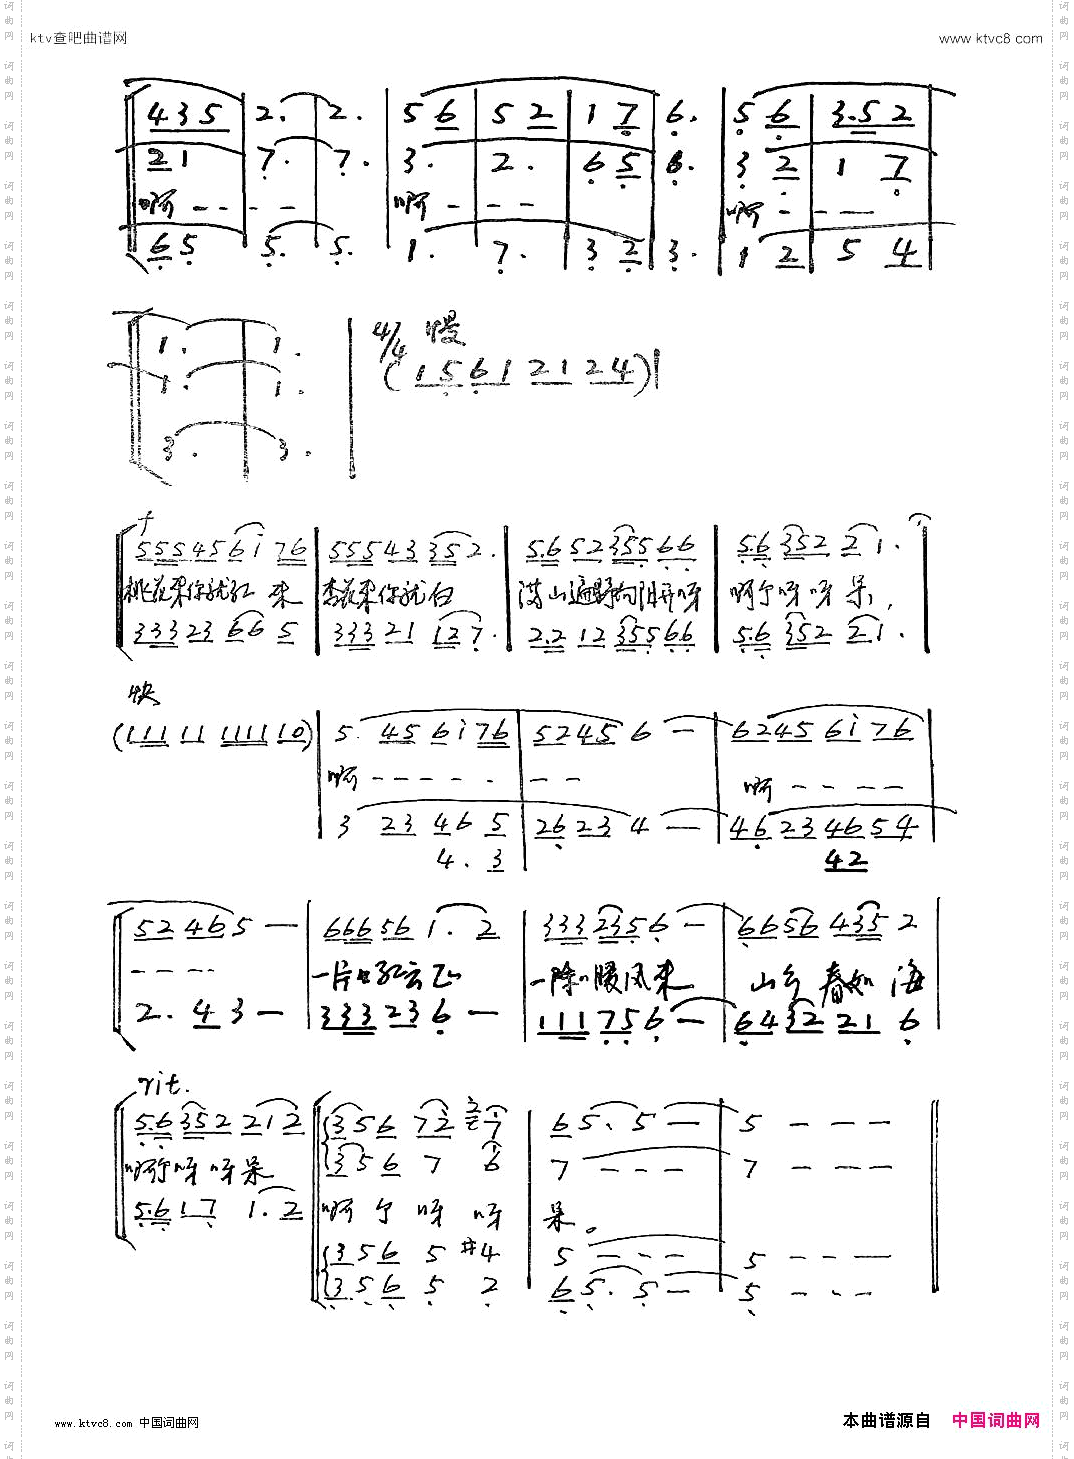 ktv查吧曲谱网 www ktvc8 com
4 3 5 2. 2. 5 6 5 2 1 7 6. 5 6 3.5 2
2 1 7. 7. 3. 2. 6 5 6. 3 2 1 7
啊 - - - - 啊 - - - 啊 - - —
6 5 5. 5. 1. 7. 3 2 3. 1 2 5 4
1. 1. 4/4 慢
1. 1. (1 5 6 1 2 1 2 4)
3. 3.
f
5 5 5 4 5 6 i 7 6 5 5 5 4 3 3 5 2. 5.6 5 2 3 5 5 6 6 5.6 3 5 2 2 1.
桃花来你就红来 李花来你就白 满山遍野向阳开呀 啊个呀呀呆,
3 3 3 2 3 6 6 5 3 3 3 2 1 1 2 7. 2.2 1 2 3 5 5 6 6 5.6 3 5 2 2 1.
快
(1 1 1 1 1 1 1 1 1 1 0) 5. 4 5 6 i 7 6 5 2 4 5 6 — 6 2 4 5 6 i 7 6
啊 - - - - - - - 啊 - - - -
3 2 3 4 6 5 2 6 2 3 4 — 4 6 2 3 4 6 5 4
4. 3 4 2
5 2 4 6 5 — 6 6 6 5 6 1. 2 3 3 3 2 3 5 6 — 6 6 5 6 4 3 5 2
- - - - 一片红云飞 一阵暖风来 山乡春如海
2. 4 3 — 3 3 3 2 3 6 — 1 1 1 7 5 6 — 6 4 3 2 2 1 6
rit.
5.6 3 5 2 2 1 2 3 5 6 7 2 2 7 6 5. 5 — 5 - - -
3 5 6 7 6 7 - - - 7 - - -
啊个呀呀呆 啊个呀呀 呆。
5.6 1 7 1. 2 3 5 6 5 #4 5 - - - 5 - - —
3. 5 6 5 2 6 5. 5 — 5 - - -
www.ktvc8.com 中国词曲网 本曲谱源自 中国词曲网